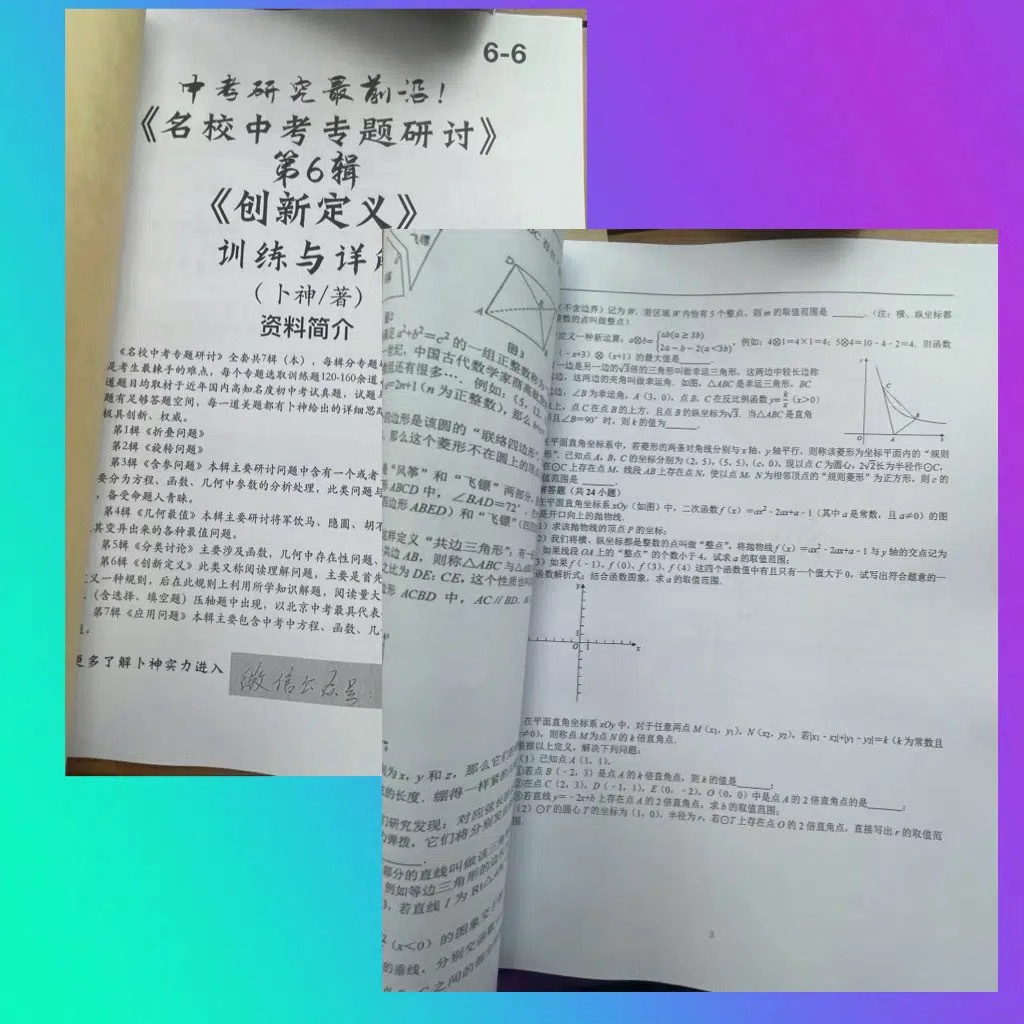 6-6
中考研究最前沿！
《名校中考专题研讨》
第6辑
《创新定义》
训练与详
（卜神/著）
资料简介
《名校中考专题研讨》全套共7辑（本），每辑分专题
是考生最棘手的难点，每个专题选取训练题120-160余道
道题目均取材于近年国内高知名度初中考试真题，试题
题有足够答题空间，每一道美题都有卜神给出的详细思
极具创新、权威。
第1辑《折叠问题》
第2辑《旋转问题》
第3辑《含参问题》本辑主要研讨问题中含有一个或者
要分为方程、函数、几何中参数的分析处理，此类问题与
，备受命题人青睐。
第4辑《几何最值》本辑主要研讨将军饮马、隐圆、胡不
其变异出来的各种最值问题。
第5辑《分类讨论》主要涉及函数，几何中存在性问题、
第6辑《创新定义》此类又称阅读理解问题，主要是首先
定义一种规则，后在此规则上利用所学知识解题，阅读量大
，（含选择、填空题）压轴题中出现，以北京中考最具代表
第7辑《应用问题》本辑主要包含中考中方程、函数、几
更多了解卜神实力进入 微信公众号：
飞镖
D
A
图3
a²+b²=c² 的一组正整数称为
世纪，中国古代数学家商高
数组还有很多…，例如：（5，12，
a=2m+1（n 为正整数），那么
边形是该圆的“联络四边形”，
，那么这个菱形不在圆上的顶点
“风筝”和“飞镖”两部分，
ABCD 中，∠BAD=72°，
边形 ABED）和“飞镖”（凹四
样定义“共边三角形”：有一
共边 AB，则称△ABC 与△
之比为 DE：CE，这个性质
形 ACBD 中，AC∥BD．
为 x，y 和 z，那么它们
的长度．绷得一样紧的
们研究发现：对应弦长
弹拨，它们将分别发
部分的直线叫做该三角
例如等边三角形的
3，若直线 l 为 Rt△
（x＜0）的图象交于
的垂线，分别交函数
之间的部分
（不含边界）记为 W．若区域 W 内恰有 5 个整点，则 m 的取值范围是______．（注：横、纵坐标都
整数的点叫做整点）
定义一种新运算：a⊗b={ab(a≥3b) 2a－b－2(a<3b)，例如：4⊗1=4×1=4；5⊗4=10－4－2=4．则函数
（－x+3）⊗（x+1）的最大值是______．
一边是另一边的√3倍的三角形叫做幸运三角形，这两边中较长边称
边，这两边的夹角叫做幸运角．如图，△ABC 是幸运三角形，BC
边，∠B 为幸运角，A（3，0），点 B，C 在反比例函数 y=k/x（x＞0）
上，点 C 在点 B 的上方，且点 B 的纵坐标为√3．当△ABC 是直角
且∠B=90°时，则 k 的值为______．
y
C
B
O
A
x
平面直角坐标系中，若菱形的两条对角线分别与 x 轴，y 轴平行，则称该菱形为坐标平面内的“规则
形”．已知点 A，B，C 的坐标分别为（2，5），（5，5），（c，0），现以点 C 为圆心，2√2长为半径作⊙C，
在⊙C 上存在点 M，线段 AB 上存在点 N，使以点 M、N 为相邻顶点的“规则菱形”为正方形，则 c 的
值范围是______．
解答题（共 24 小题）
在平面直角坐标系 xOy（如图）中，二次函数 f（x）=ax²－2ax+a－1（其中 a 是常数，且 a≠0）的图
是开口向上的抛物线．
1）求该抛物线的顶点 P 的坐标；
2）我们将横、纵坐标都是整数的点叫做“整点”，将抛物线 f（x）=ax²－2ax+a－1 与 y 轴的交点记为
，如果线段 OA 上的“整点”的个数小于 4，试求 a 的取值范围；
3）如果 f（－1）、f（0）、f（3）、f（4）这四个函数值中有且只有一个值大于 0，试写出符合题意的一
函数解析式；结合函数图象，求 a 的取值范围．
y
1
O
1
x
在平面直角坐标系 xOy 中，对于任意两点 M（x₁，y₁），N（x₂，y₂），若|x₁－x₂|+|y₁－y₂|=k（k 为常数且
≠0），则称点 M 为点 N 的 k 倍直角点．
根据以上定义，解决下列问题：
（1）已知点 A（1，1），
①若点 B（－2，3）是点 A 的 k 倍直角点，则 k 的值是______；
②在点 C（2，3），D（－1，1），E（0，－2），O（0，0）中是点 A 的 2 倍直角点的是______；
③若直线 y=－2x+b 上存在点 A 的 2 倍直角点，求 b 的取值范围；
（2）⊙T 的圆心 T 的坐标为（1，0），半径为 r，若⊙T 上存在点 O 的 2 倍直角点，直接写出 r 的取值范
3